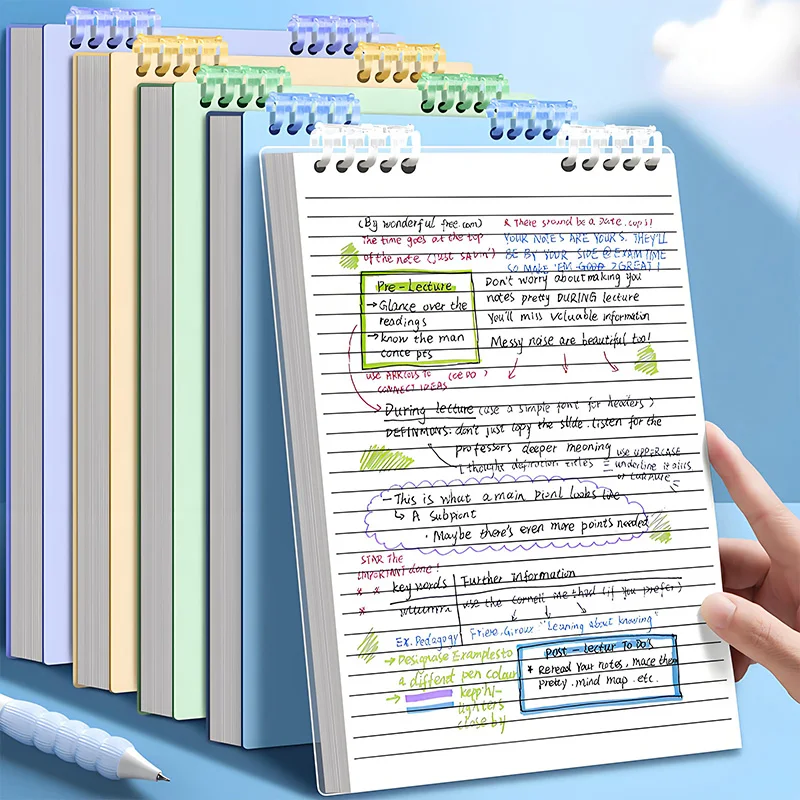 (By wonderful free.com)
The time goes at the top
of the note (just sayin')
& There shound be a Date. cops!
YOUR NOTES ARE YOURS. THEY'LL
BE BY YOUR SIDE @ EXAM TIME
SO MAKE 'EM GOOD 2 GREAT!
Pre-Lecture
→ Glance over the
readings
→ know the man
conce pts
Don't worry about making you
notes pretty DURING lecture
You'll miss valuable information
Messy noise are beautiful too!
USE ARROLS TO (CE DO)
CONNECT IDEAS
During lecture (use a simple font for headers)
DEFINMIONS: don't just copy the slide. listen for the
professors deeper meaning
(thoughts definition titles
use UPPERCASE
underline it airs
or
- This is what a main pionl looks like
↳ A Subpiont
· Maybe there's even more points needed
STAR The
IMPORTANT done!
* * key words
Further Information
*
use the Cornell Me thod (if You prefer)
Ex. Pedagogy
Friere, Giroux "Leaning about knowing"
→ Designase Examplesto
a differd pen colour
→ kepp hi-
lighters
close by
post - lectur To Do's
* Reread Your notes, mace them
pretty .mind map .etc.